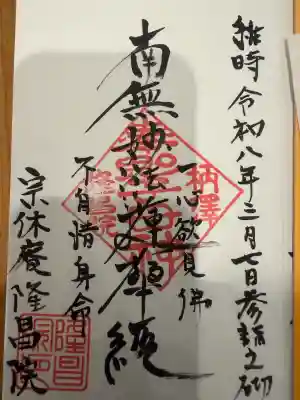 維時 令和八年三月七日参詣之砌
柄澤
一心欲見佛
南無妙法蓮華経
不自惜身命
隆昌院
宗休庵 隆昌院